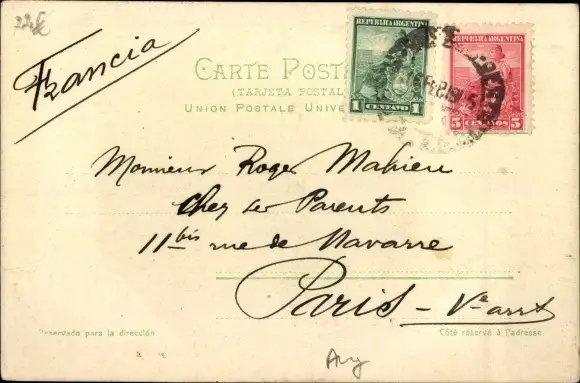 Francia
REPUBLICA ARGENTINA
1 CENTAVO 1
REPUBLICA ARGENTINA
5 CENTAVOS 5
CARTE POSTA
(TARJETA POSTAL
UNION POSTALE UNIVE
Monsieur Roger Mahieu
chez ses Parents
11bis rue de Navarre
Paris - Ve arrt
Reservado para la dirección
Côté réservé à l'adresse